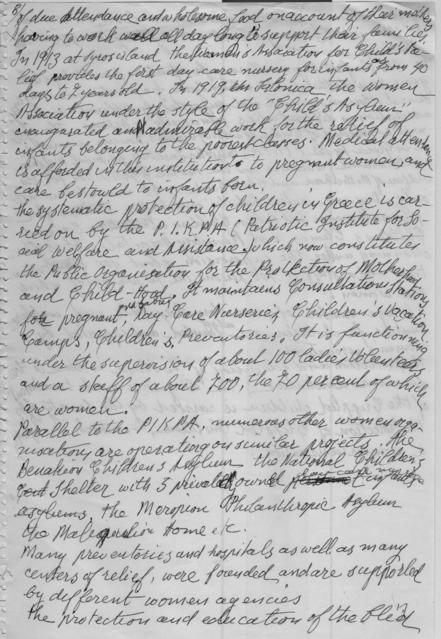 8/
of due attendance and wholesome food on account of their mothers
having to work all day long to support their families.
In 1913 at Syros island, the women's Association for Child's Re
lief, provides the first day care nursery for infants from 40
days to 2 years old. In 1919, in Salonica the women
Association under the style of the "Child's Asylum"
inaugurated an admirable work for the relief of
infants belonging to the poorest classes. Medical attendance
is afforded in this institution to pregnant women, and
care bestowed to infants born.
the systematic protection of children in Greece is car-
ried on by the P.I.K.P.A (Patriotic Institute for So-
cial Welfare and Assistance, which now constitutes
the Public Organisation for the Protection of Motherhood
and Child-Hood. It maintains Consultations Stations
for pregnant, Day-Care Nurseries, Children's Vacation
Camps, Children's, Preventories. It is functioning
under the supervision of about 100 ladies Volunteers
and a staff of about 700, the 70 percent of which
are women.
Parallel to the P.I.K.P.A, numerous other women orga-
nisations are operating on similar projects. The
Benakeion Children's Asylum the National Children's
Shelter with 3 privately owned day care nurseries infants
asylums, the Meropion Philanthropic Asylum
the Home etc.
Many preventories and hospitals as well as many
centers of relief, were founded and are supported
by different women agencies
the protection and education of the Blind